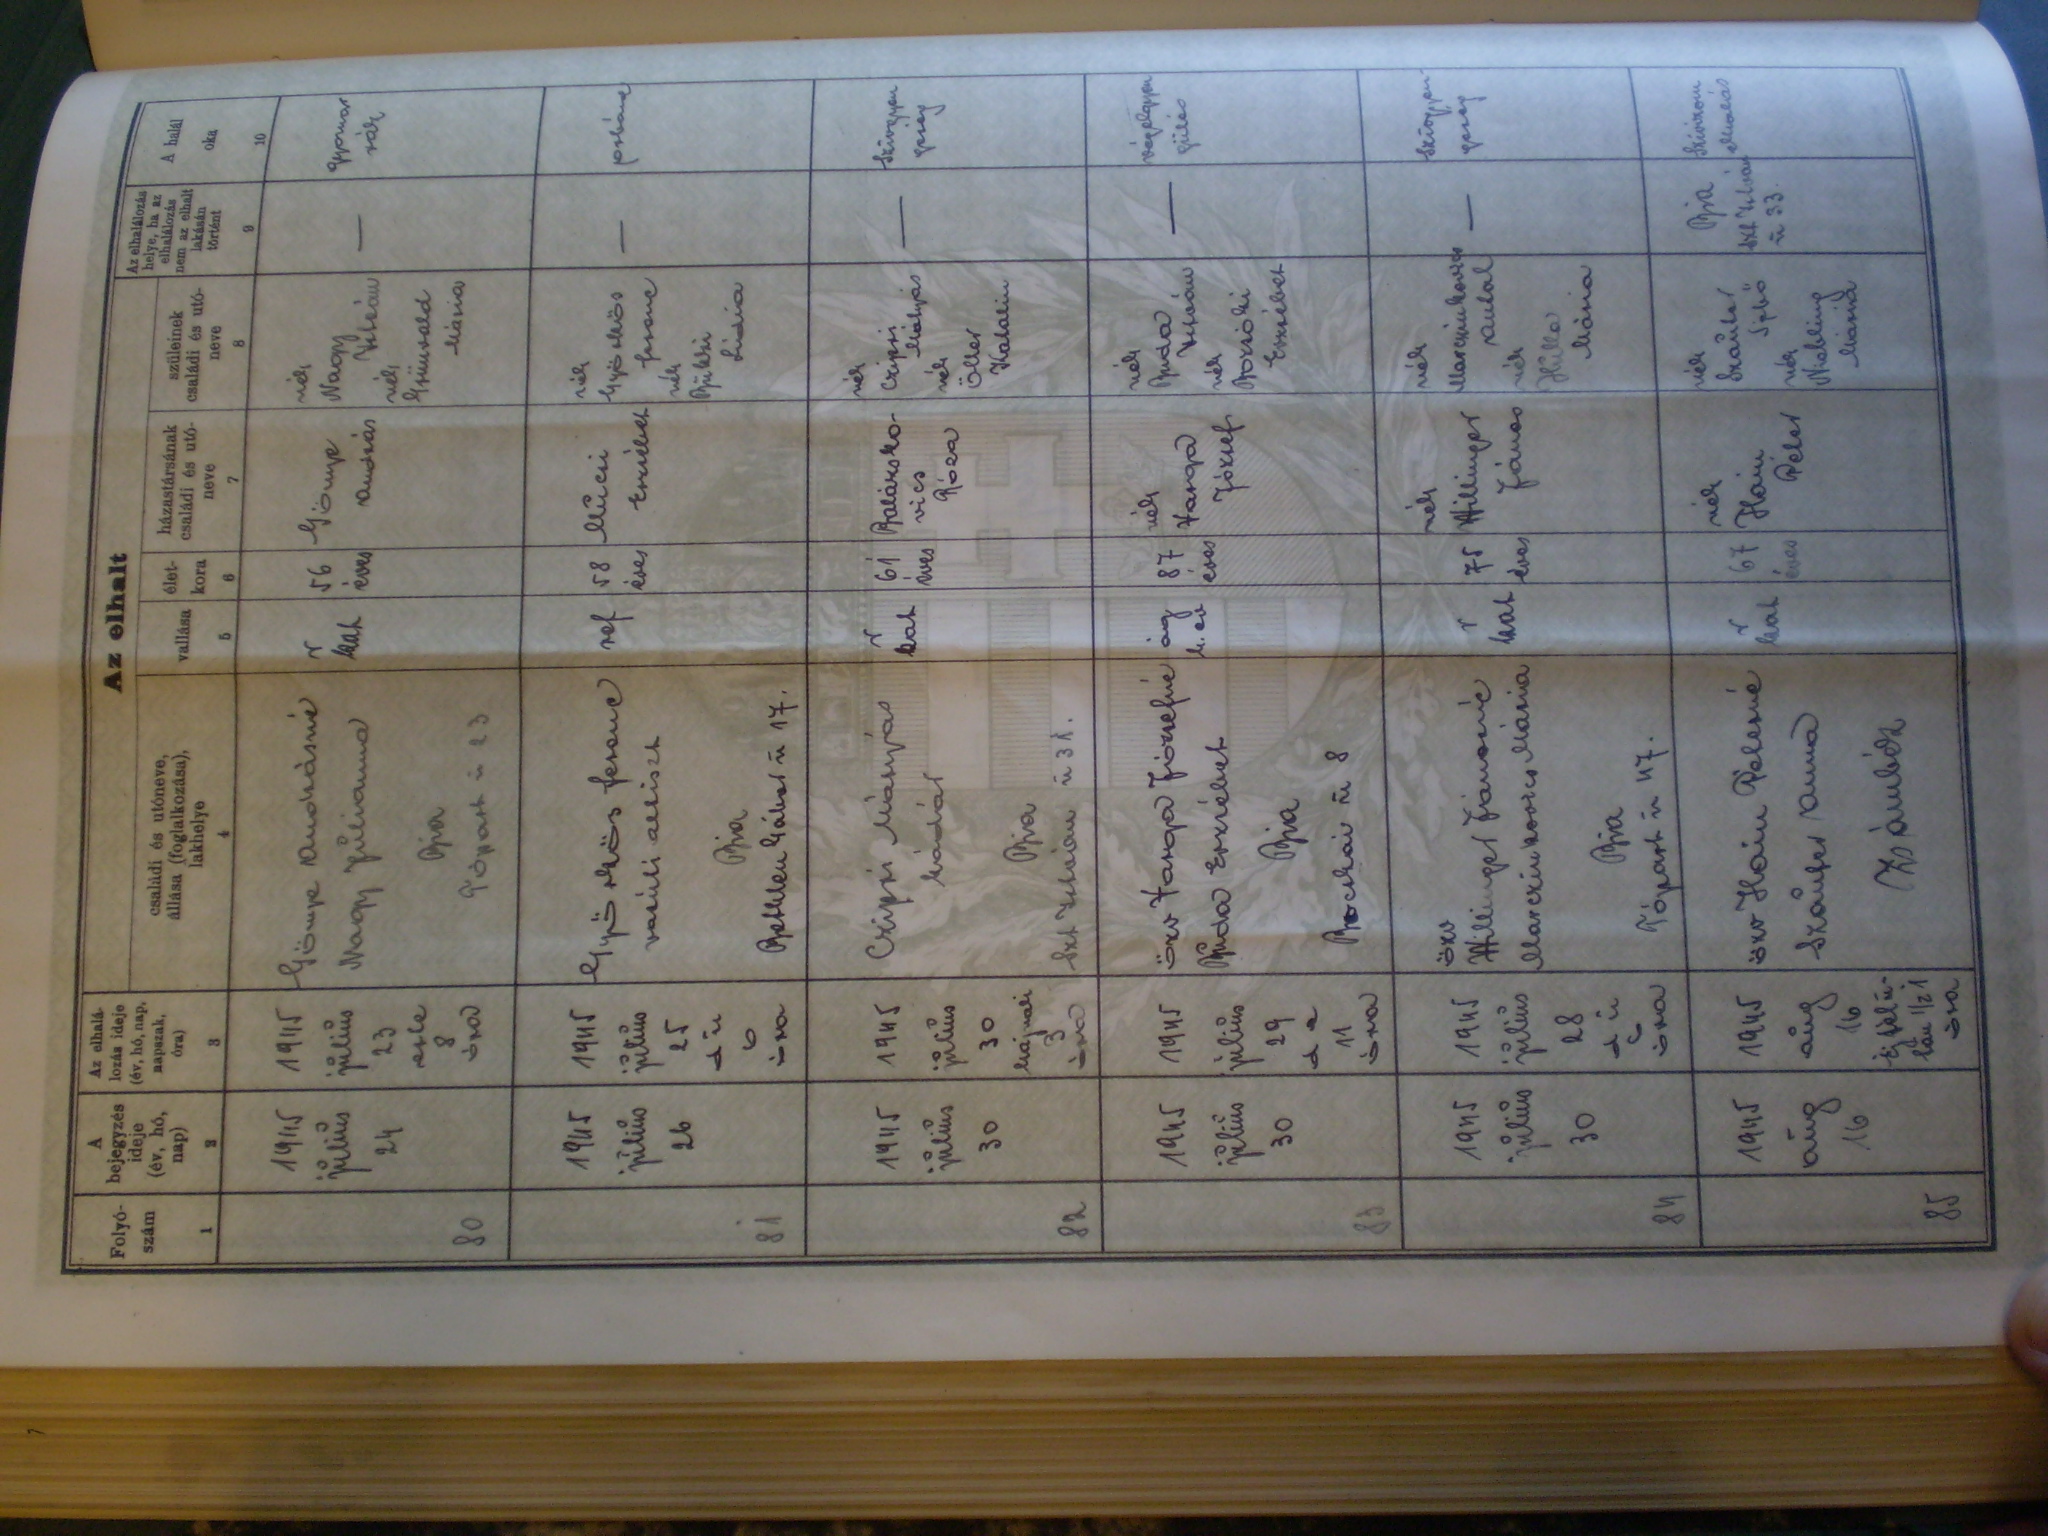 Az elhalt
Folyó-
szám
A
bejegyzés
ideje
(év, hó,
nap)
Az elhalá-
lozás ideje
(év, hó, nap,
napszak,
óra)
családi és utóneve,
állása (foglalkozása),
lakhelye
vallása
élet-
kora
házastársának
családi és utó-
neve
szüleinek
családi és utó-
neve
Az elhalálozás
helye, ha az
elhalálozás
nem az elhalt
lakásán
történt
A halál
oka
1
2
3
4
5
6
7
8
9
10
80
1945
július
24
1945
július
23
este
8
óra
Gömpe Andrásné
Nagy Julianna
Bia
Tópart u 23
r
kath
56
éves
Gömpe
András
néh
Nagy
István
néh
Grünvald
Mária
—
gyomor
rák
81
1945
július
26
1945
július
25
du
6
óra
Györkös Ferenc
vasúti altiszt
Bia
Bethlen Gábor u 17.
ref
58
éves
Mucsi
Erzsébet
néh
Györkös
Ferenc
néh
Lidia
—
82
1945
július
30
1945
július
30
hajnali
3
óra
Czipri Mátyás
kádár
Bia
Szt István u
r
kath
61
éves
Róza
néh
Czipri
Mátyás
néh
Öller
Katalin
—
Szívgyen
geség
83
1945
július
30
1945
július
29
de
11
óra
özv Varga Józsefné
Buda Erzsébet
Bia
Bocskai u 8
ág
h. ev
87
éves
néh
Varga
József
néh
Buda
István
néh
Erzsébet
—
végelgyen
gülés
84
1945
július
30
1945
július
28
du
6
óra
özv
Willinger Jánosné
Marczinkovics Mária
Bia
Tópart u 47.
r
kath
75
éves
néh
Willinger
János
néh
Marczinkovics
Antal
néh
Mária
—
Szívgyen-
geség
85
1945
aug
16
1945
aug
16
éjfél u-
tán 1/2 1
óra
özv Hain Péterné
Anna
Zsámbék
r
kath
67
éves
néh
Hain
Péter
néh
néh
Mária
Bia
Szt István
u 33.